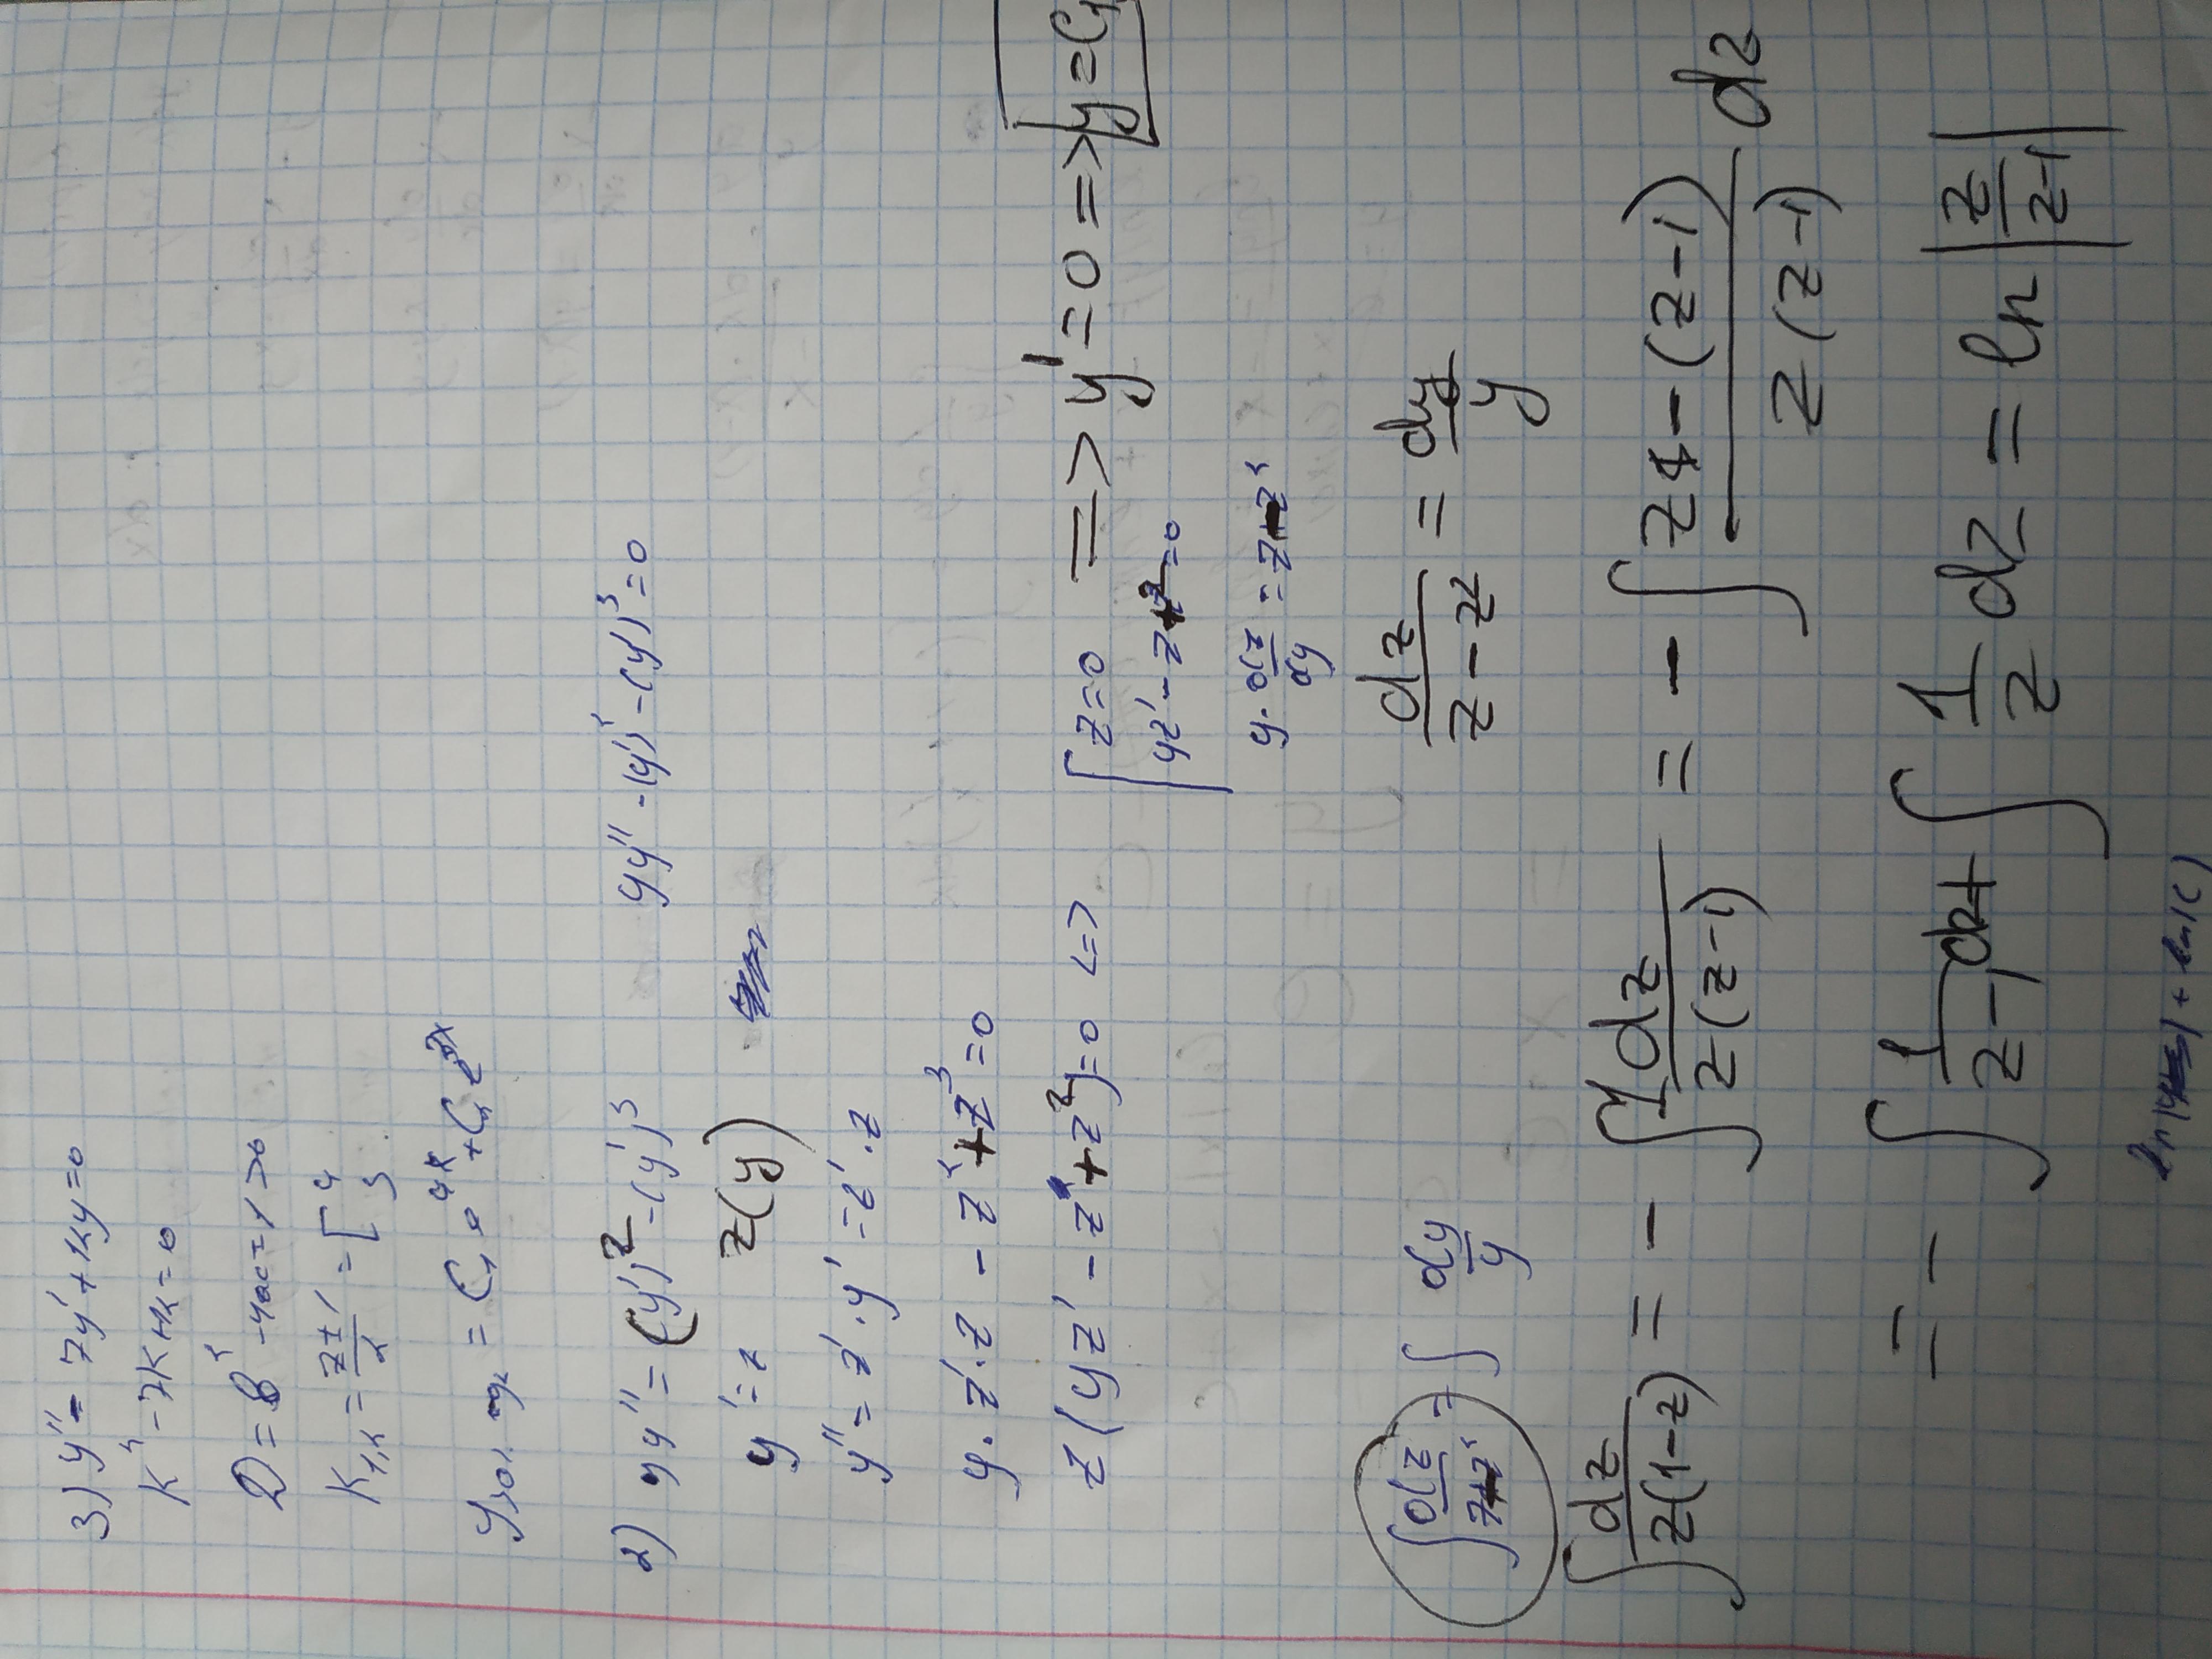 3) y'' - 7y' + 12y = 0
k² - 7k + 12 = 0
D = b² - 4ac = 1 > 0
k₁,₂ = (7±1)/2 = [4 3
= C₁ e^{4x} + C₂ e^{3x}
2) yy'' = (y')² - (y')³ yy'' - (y')² - (y')³ = 0
y' = z z(y)
y'' = z'·y' = z'·z
y·z'·z - z² + z³ = 0
z(yz' - z + z²) = 0 <=> [z = 0 => y' = 0 => y = C₁
yz' - z + z² = 0
y·dz/dy = z - z²
∫ dz/(z - z²) = ∫ dy/y dz/(z - z²) = dy/y
∫ dz/(z(1-z)) = - ∫ 1dz/(z(z-1)) = - ∫ (z - (z-1))/(z(z-1)) dz
= - ∫ 1/(z-1) dz + ∫ 1/z dz = ln |z/(z-1)|